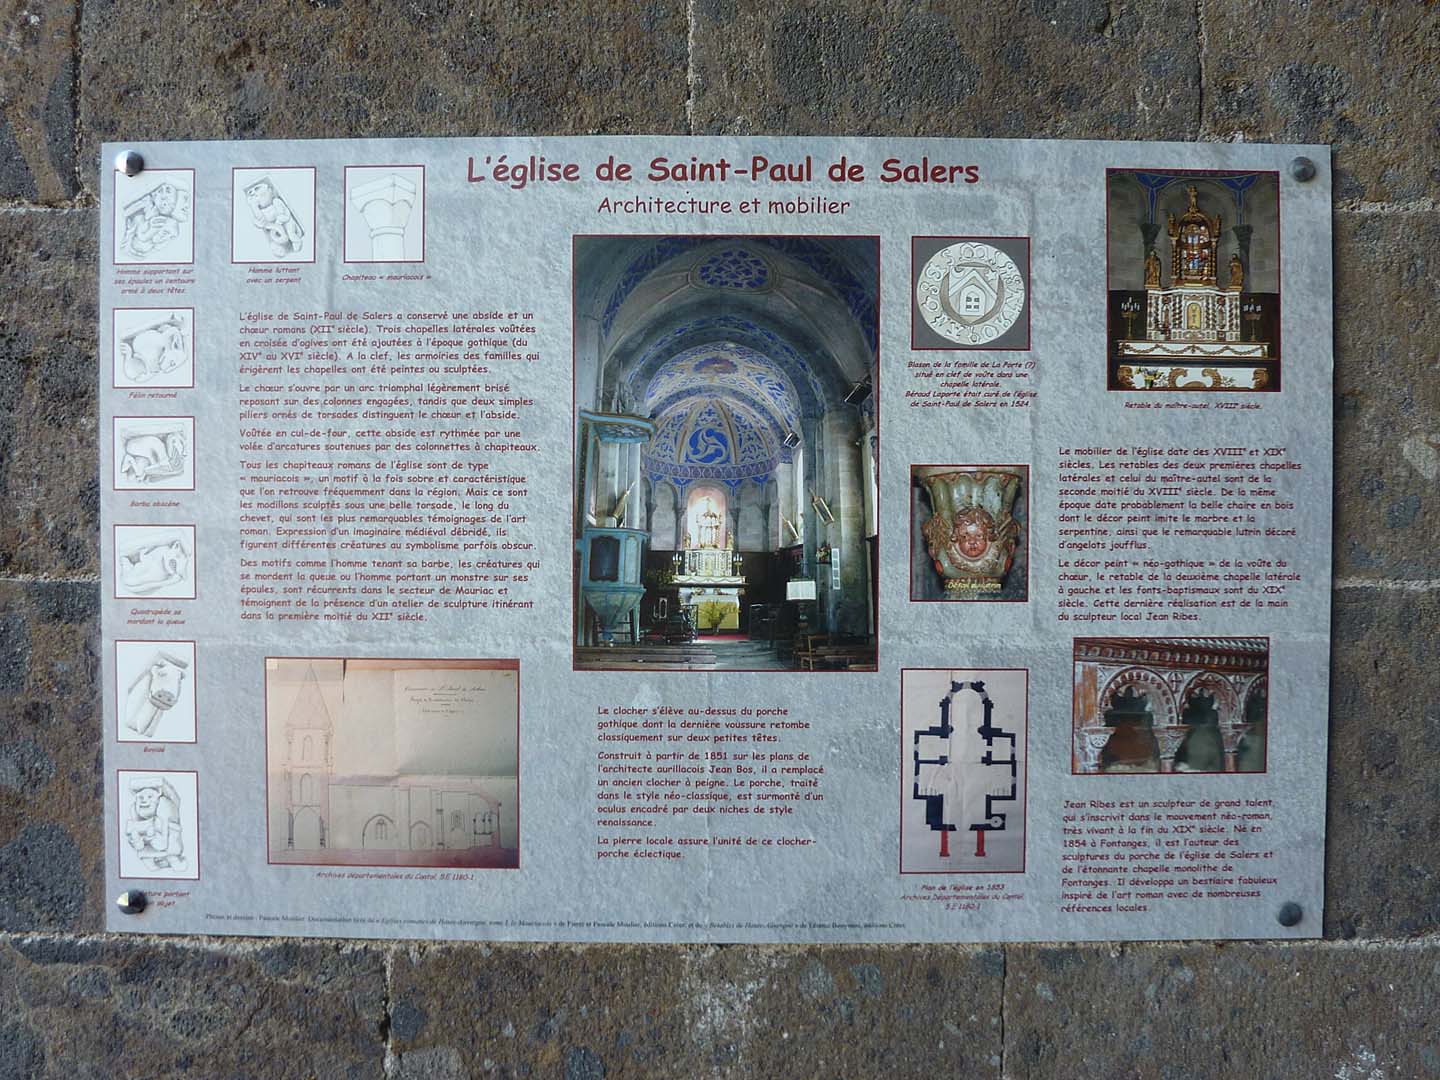 L'église de Saint-Paul de Salers
Architecture et mobilier
Homme supportant sur
ses épaules un centaure
armé à deux têtes.
Homme luttant
avec un serpent
Chapiteau « mauriacois »
Félin retourné
Barbu obscène
Quadrupède se
mordant la queue
Bovidé
portant
L'église de Saint-Paul de Salers a conservé une abside et un
chœur romans (XIIe siècle). Trois chapelles latérales voûtées
en croisée d'ogives ont été ajoutées à l'époque gothique (du
XIVe au XVIe siècle). A la clef, les armoiries des familles qui
érigèrent les chapelles ont été peintes ou sculptées.
Le chœur s'ouvre par un arc triomphal légèrement brisé
reposant sur des colonnes engagées, tandis que deux simples
piliers ornés de torsades distinguent le chœur et l'abside.
Voûtée en cul-de-four, cette abside est rythmée par une
volée d'arcatures soutenues par des colonnettes à chapiteaux.
Tous les chapiteaux romans de l'église sont de type
« mauriacois », un motif à la fois sobre et caractéristique
que l'on retrouve fréquemment dans la région. Mais ce sont
les modillons sculptés sous une belle torsade, le long du
chevet, qui sont les plus remarquables témoignages de l'art
roman. Expression d'un imaginaire médiéval débridé, ils
figurent différentes créatures au symbolisme parfois obscur.
Des motifs comme l'homme tenant sa barbe, les créatures qui
se mordent la queue ou l'homme portant un monstre sur ses
épaules, sont récurrents dans le secteur de Mauriac et
témoignent de la présence d'un atelier de sculpture itinérant
dans la première moitié du XIIe siècle.
Archives départementales du Cantal, 5 E 1180-1
Le clocher s'élève au-dessus du porche
gothique dont la dernière voussure retombe
classiquement sur deux petites têtes.
Construit à partir de 1851 sur les plans de
l'architecte aurillacois Jean Bos, il a remplacé
un ancien clocher à peigne. Le porche, traité
dans le style néo-classique, est surmonté d'un
oculus encadré par deux niches de style
renaissance.
La pierre locale assure l'unité de ce clocher-
porche éclectique.
Blason de la famille de La Porte (?)
situé en clef de voûte dans une
chapelle latérale.
Béraud Laporte était curé de l'église
de Saint-Paul de Salers en 1524
Plan de l'église en 1853
Archives Départementales du Cantal,
5 E 1180-1
Retable du maître-autel, XVIIIe siècle.
Le mobilier de l'église date des XVIIIe et XIXe
siècles. Les retables des deux premières chapelles
latérales et celui du maître-autel sont de la
seconde moitié du XVIIIe siècle. De la même
époque date probablement la belle chaire en bois
dont le décor peint imite le marbre et la
serpentine, ainsi que le remarquable lutrin décoré
d'angelots joufflus.
Le décor peint « néo-gothique » de la voûte du
chœur, le retable de la deuxième chapelle latérale
à gauche et les fonts-baptismaux sont du XIXe
siècle. Cette dernière réalisation est de la main
du sculpteur local Jean Ribes.
Jean Ribes est un sculpteur de grand talent,
qui s'inscrivit dans le mouvement néo-roman,
très vivant à la fin du XIXe siècle. Né en
1854 à Fontanges, il est l'auteur des
sculptures du porche de l'église de Salers et
de l'étonnante chapelle monolithe de
Fontanges. Il développa un bestiaire fabuleux
inspiré de l'art roman avec de nombreuses
références locales.